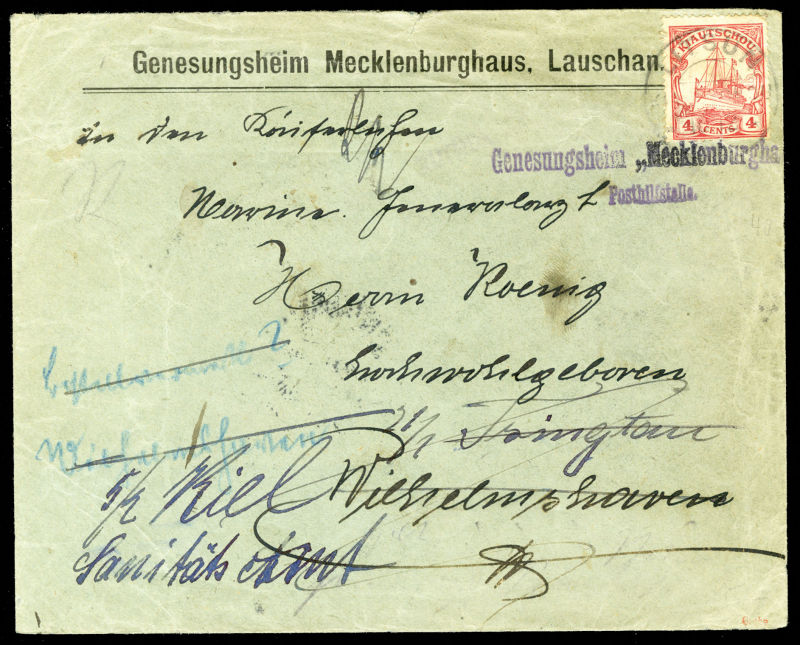 KIAUTSCHOU
4 CENTS 4
Genesungsheim Mecklenburghaus, Lauschan.
An den Kaiserlichen
Genesungsheim „Mecklenburgha
Posthilfstelle.
Marine Generalarzt
Herrn Koenig
Hochwohlgeboren
Tsingtau
Wilhelmshaven
Kiel
Sanitätsamt